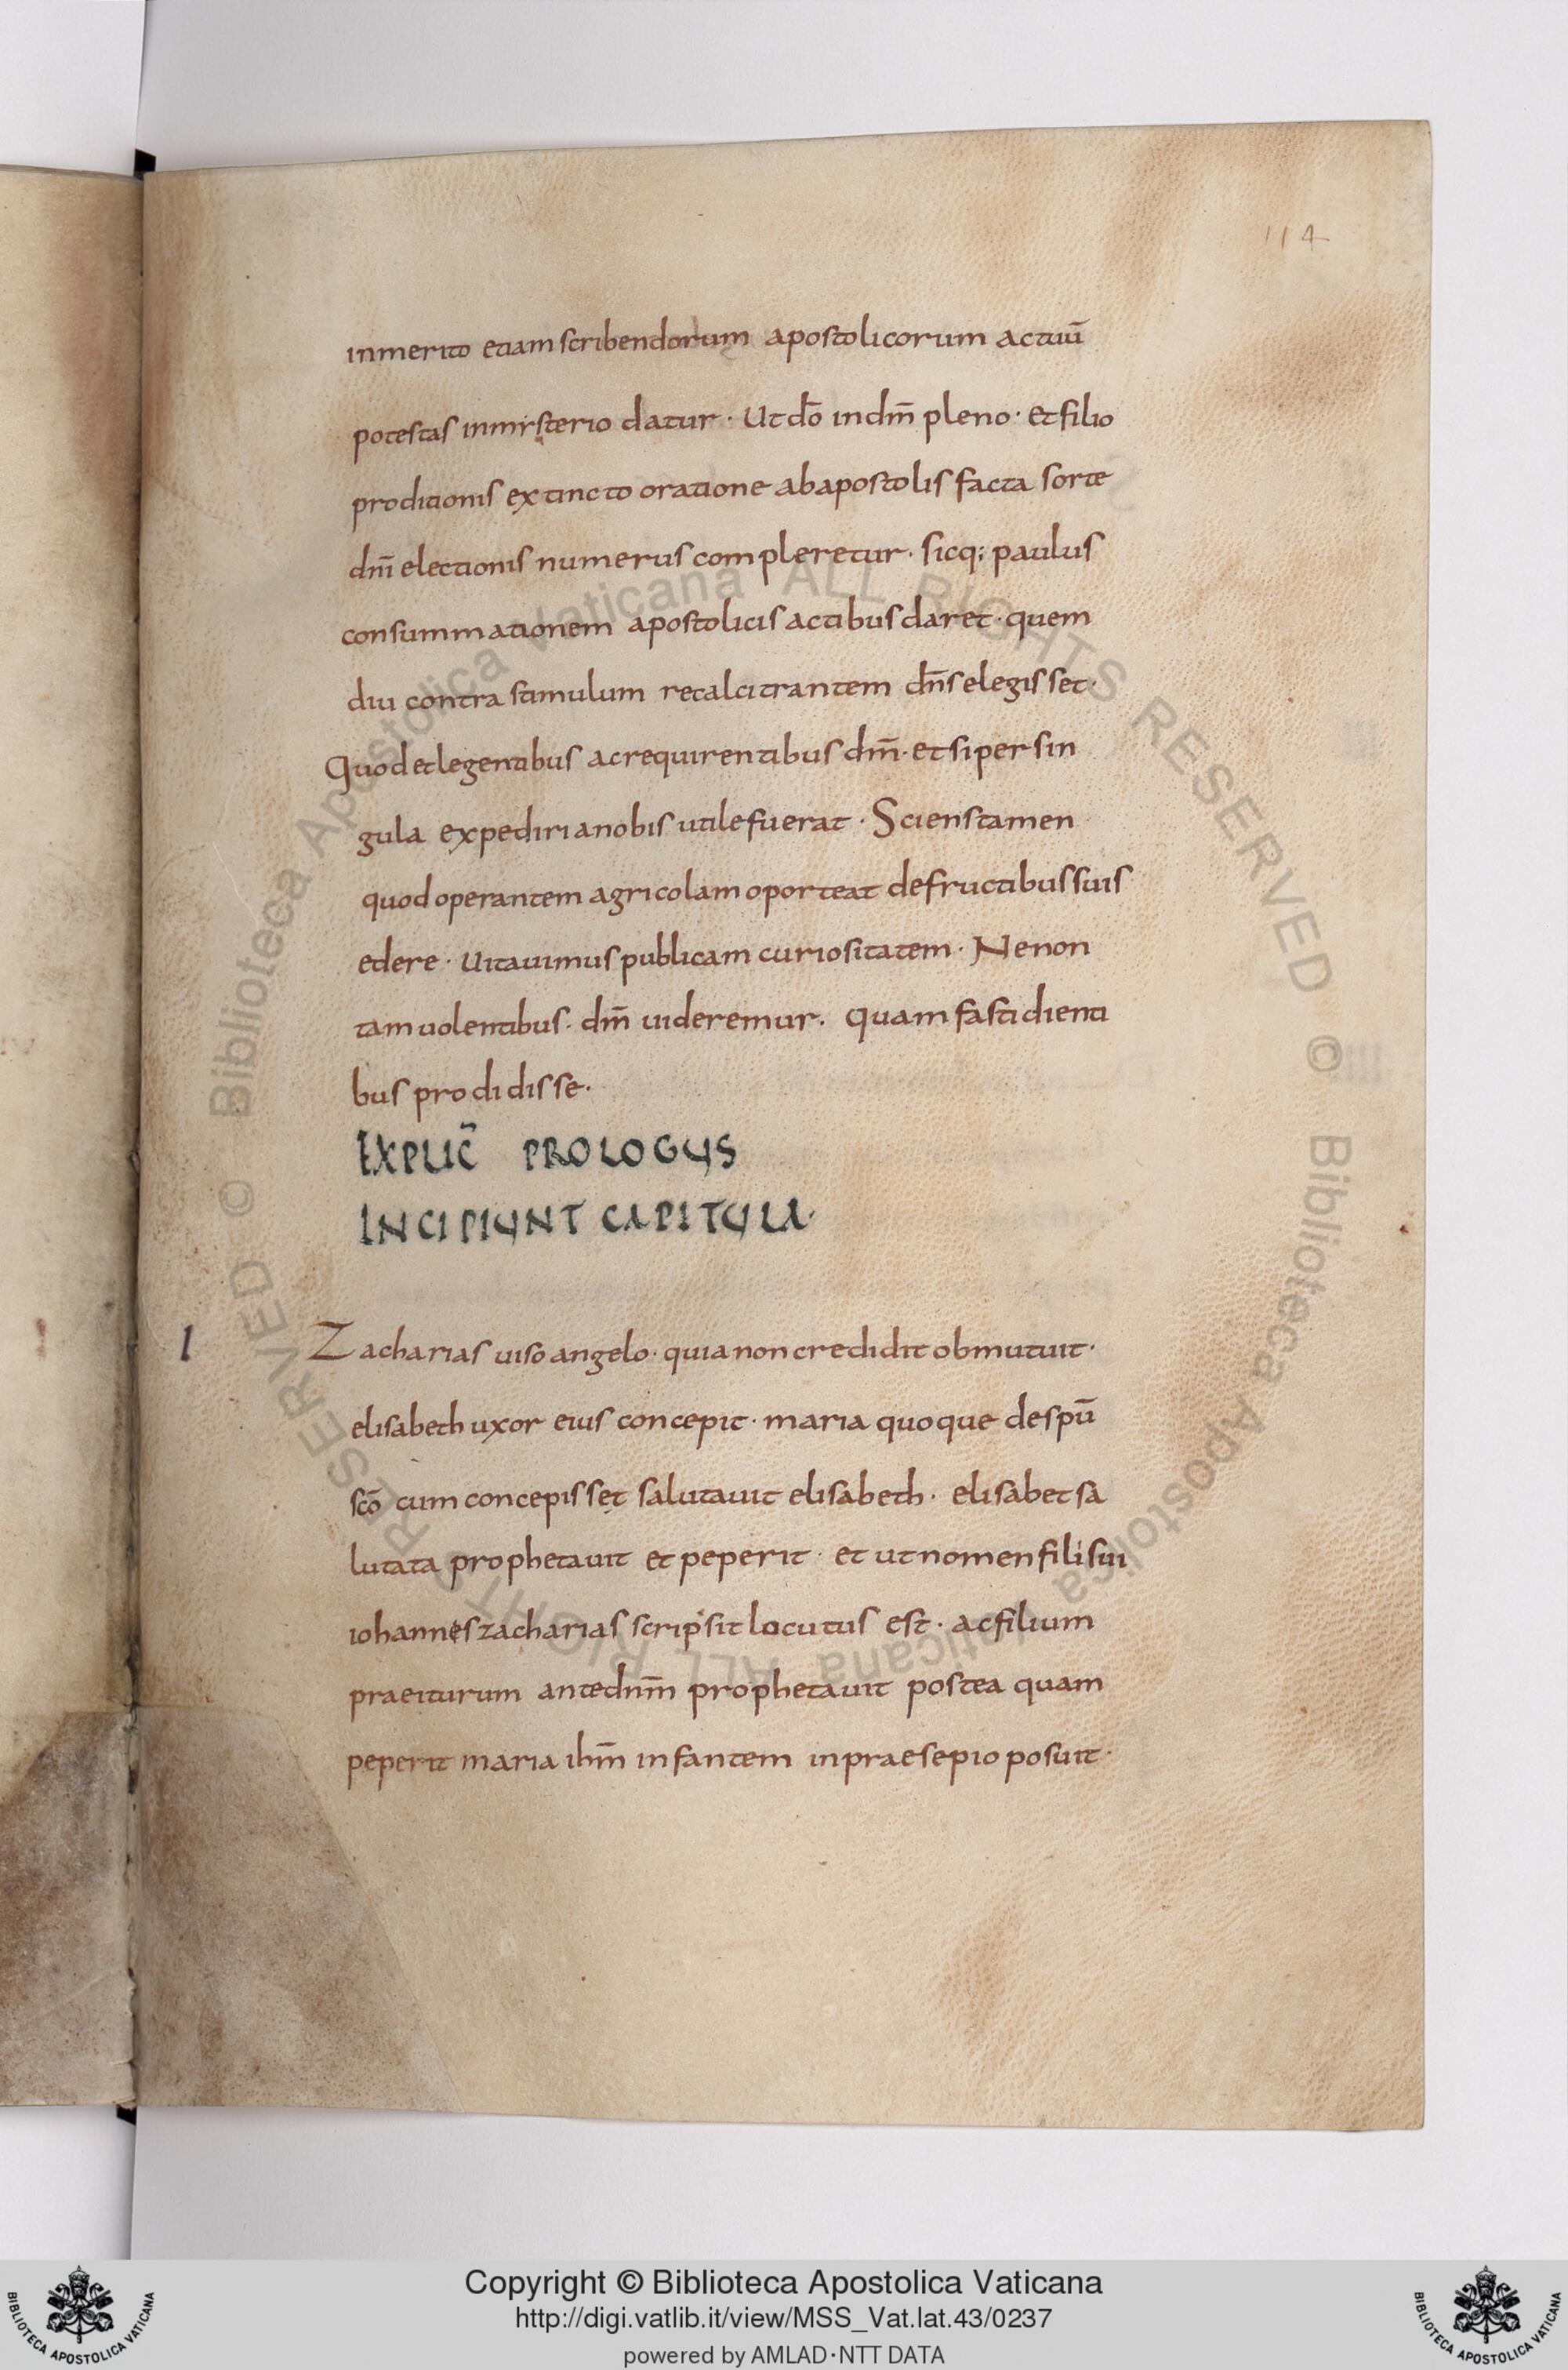 114
inmerito etiam scribendorum apostolicorum actiuū
potestas inmisterio datur · Ut dō indm̄ pleno · Et filio
proditionis extincto oratione abapostolis facta sorte
dn̄i electionis numerus compleretur · sicq; paulus
consummationem apostolicis actibus daret · quem
diu contra stimulum recalcitrantem dn̄s elegisset ·
Quod et legentibus ac requirentibus dm̄ · et si per sin
gula expediri a nobis utile fuerat · Sciens tamen
quod operantem agricolam oporteat de fructibus suis
edere · Uitauimus publicam curiositatem · Ne non
tam uolentibus · dm̄ uideremur · quam fastidienti
bus prodidisse ·
EXPLIC̄ PROLOGUS
INCIPIUNT CAPITULA ·
I Zacharias uiso angelo · quia non credidit obmutuit ·
elisabeth uxor eius concepit · maria quoque despū
sc̄o cum concepisset salutauit elisabeth · elisabet sa
lutata prophetauit et peperit · et ut nomen fili sui
iohannes zacharias scripsit locutus est · ac filium
praeiturum ante dnm̄ prophetauit postea quam
peperit maria ihm̄ infantem in praesepio posuit ·
© Biblioteca Apostolica Vaticana ALL RIGHTS RESERVED
© Biblioteca Apostolica Vaticana ALL RIGHTS RESERVED
Copyright © Biblioteca Apostolica Vaticana
http://digi.vatlib.it/view/MSS_Vat.lat.43/0237
powered by AMLAD·NTT DATA
BIBLIOTECA APOSTOLICA VATICANA
BIBLIOTECA APOSTOLICA VATICANA